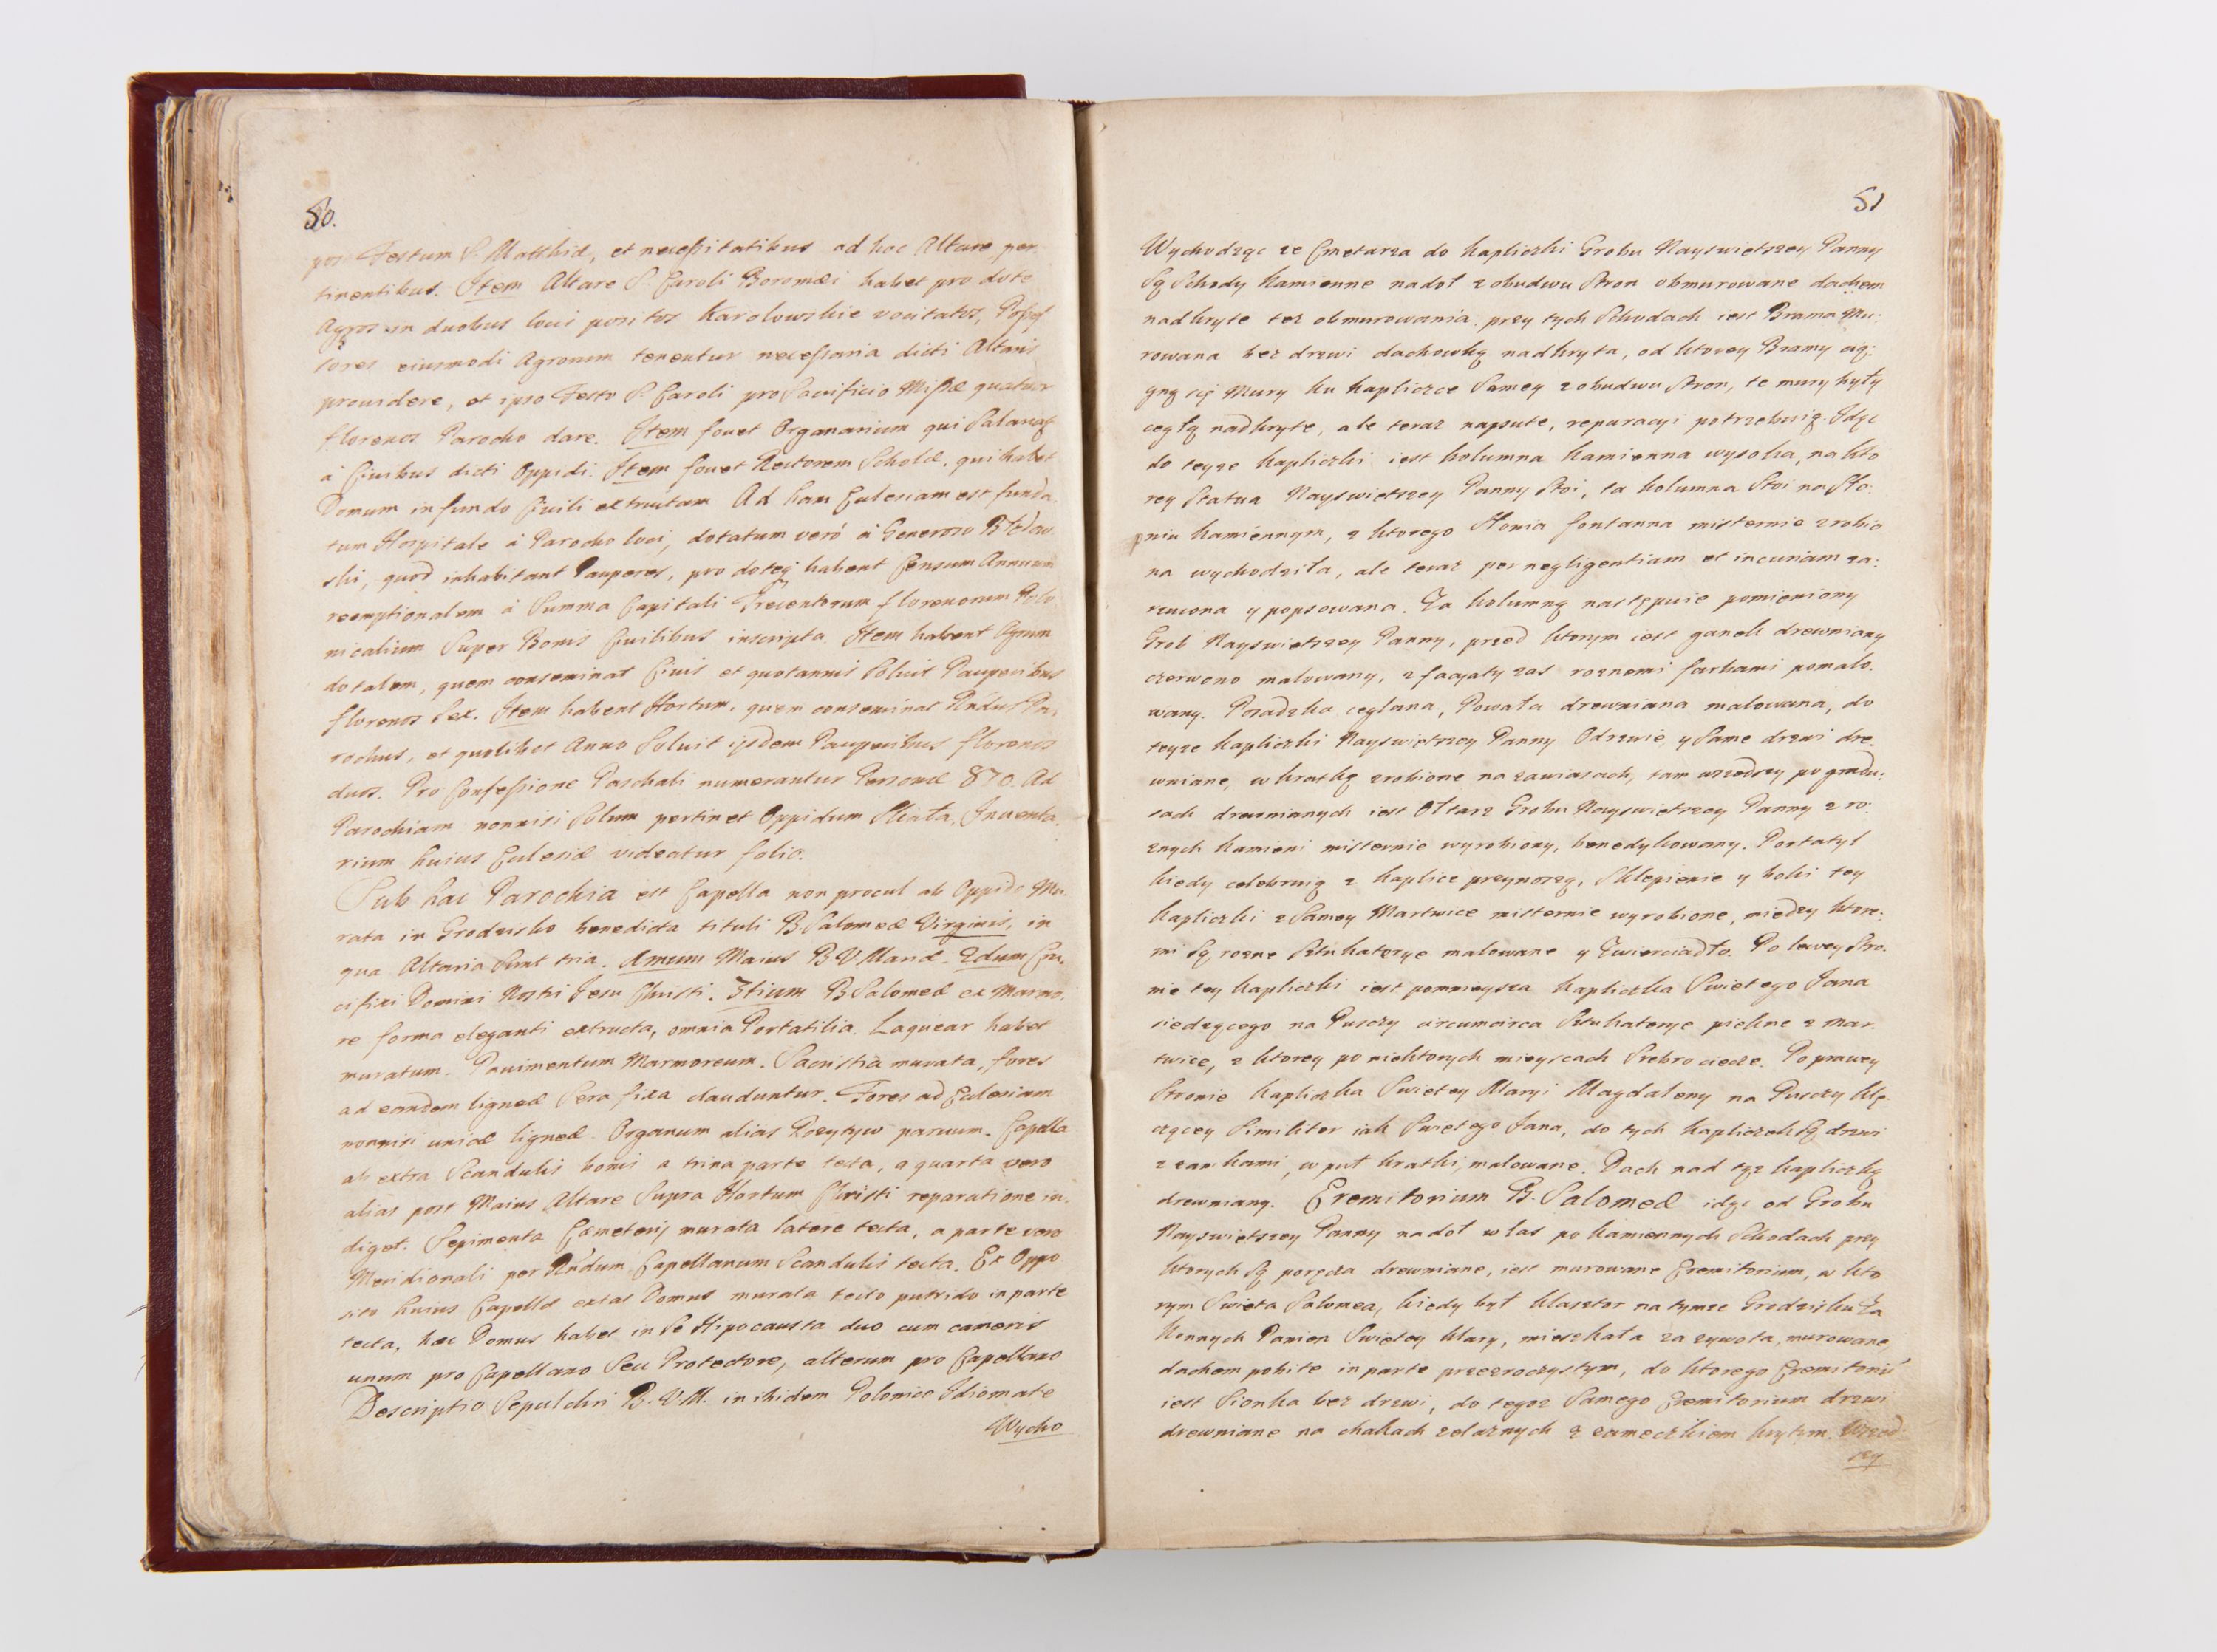 50.
post Festum S. Matthiæ, et necessitatibus ad hoc Altare per
tinentibus. Item Altare S. Caroli Boromæi habet pro dote
Agros in duobus loci positos Karolowskie vocitatos, Posses
sores eiusmodi Agrorum tenentur necessaria dicti Altaris
prouidere, et ipso Festo S. Caroli pro Sacrificio Missæ quatuor
florenos Parocho dare. Item fouet Organarium qui Salariat
à Ciuibus dicti Oppidi. Item fouet Rectorem Scholæ, qui habet
Domum in fundo Ciuili extructam Ad hanc Eclesiam est funda
tum Hospitale à Parocho loci, dotatum verò à Generoso
ski, quod inhabitant Pauperes, pro doteq habent Censum Annuum
reemptionalem à Summa Capitali Trecentorum florenorum Polo
nicalium Super Bonis Ciuilibus inscripta Item habent Agrum
dotalem, quem conseminat Ciuis et quotannis Soluit Pauperibus
florenos Sex. Item habent Hortum, quem conseminat Rndus Pa,
rochus, et quolibet Anno Soluit ijsdem Pauperibus florenos
duos. Pro Confessione Paschali numerantur Personæ 870. Ad
Parochiam nonnisi Solum pertinet Oppidum Skała. Inuenta,
rium huius Eclesiæ videatur folio.
Sub hac Parochia est Capella non procul ab Oppido Mu-
rata in Grodzisko benedicta tituli B. Salomeæ Virginis, in
qua Altaria Sunt tria. Amum Maius B V Mariæ. 2dum Cru,
cifixi Domini Nostri Jesu Christi. 3tium B Salomeæ ex Marmo,
re forma eleganti extructa, omnia Portatilia. Laquear habet
muratum. Pauimentum Marmoreum. Sacristia murata, fores
ad eandem ligneæ Sera fixa clauduntur. Fores ad Eclesiam
nonnisi unicæ ligneæ. Organum alias Pozytyw paruum. Capella
ab extra Scandulis bonis a trina parte tecta, a quarta vero
alias post Maius Altare Supra Hortum Christi reparatione in,
diget. Sepimenta Cæmeterij murata latere tecta, a parte vero
Meridionali per Rndum Capellanum Scandulis tecta. Ex Oppo
sito huius Capellæ extat Domus murata tecto putrido in parte
tecta, hæc Domus habet in Se Hipocausta duo cum cameris
unum pro Capellano Seu Protectore, alterum pro Capellano
Descriptio Sepulchri B. V. M. in ibidem Polonico Idiomate
Wycho
51
Wychodząc ze Cmetarza do Kapliczki Grobu Nayswietszey Panny
Są Schody Kamienne nadoł z obudwu Stron obmurowane dachem
nadkryte tez obmurowania. przy tych Schodach iest Brama Mu:
rowana bez drzwi dachowką nadkryta, od ktorey Bramy cią:
gną się Mury ku Kapliczce Samey z obudwu Stron, te mury były
cegłą nadkryte, ale teraz napsute, reparacyi potrzebuią. Idąc
do teyze Kapliczki iest kolumna Kamienna wysoka, na kto
rey Statua Nayswietszey Panny Stoi, ta kolumna Stoi na Sło:
pniu Kamiennym, z ktorego Słonia fontanna misternie zrobio
na wychodziła, ale teraz per negligentiam et incuriam za:
rzucona y popsowana. Za kolumną następuie pomieniony
Grob Nayswietszey Panny, przed ktorym iest ganek drewniany
czerwono malowany, z facyaty zas roznemi farbami pomalo.
wany. Posadzka ceglana, Powała drewniana malowana, do
teyze Kapliczki Nayswietszey Panny Odrzwie y Same drzwi dre,
wniane, w kratkę zrobione na zawiasach, tam wszedszy po gradu:
sach drewnianych iest Ołtarz Grobu Nayswietszey Panny z ro:
znych Kamieni misternie wyrobiony, benedykowany. Portatyl
kiedy celebruią z Kaplice przynoszą, Sklepienie y boki tey
Kapliczki z Samey Martwice misternie wyrobione, między ktore:
mi Są rozne Sztukaterye malowane y Zwierciadło. Po lewey Stro.
nie tey Kapliczki iest pomnieysza Kapliczka Swiętego Jana
siedzącego na Puszczy circumcirca Sztukaterye piekne z Mar.
twice, z ktorey po niektorych mieyscach Srebro ciecze. Po prawey
Stronie Kapliczka Swiętey Maryi Magdaleny na Puszczy klę.
czącey Similiter iak Swiętego Jana, do tych Kapliczek Są drzwi
z zamkami, w puł kratki, malowane. Dach nad tąz kapliczką
drewniany. Eremitorium B. Salomeæ idąc od Grobu
Nayswietszey Panny nadoł w las po Kamiennych Schodach przy
ktorych Są poręcza drewniane, iest murowane Eremitorium, w kto
rym Swięta Salomea, kiedy był klasztor na tymze Grodzisku Za
konnych Panien Swiętey Klary, mieszkała za zywota, murowane,
dachem pobite in parte przezroczystym, do ktorego Eremitoriu
iest Sionka bez drzwi, do tegoz Samego Eremitorium drzwi
drewniane na chakach zelaznych z zameczkiem krytym. Wszed
szy